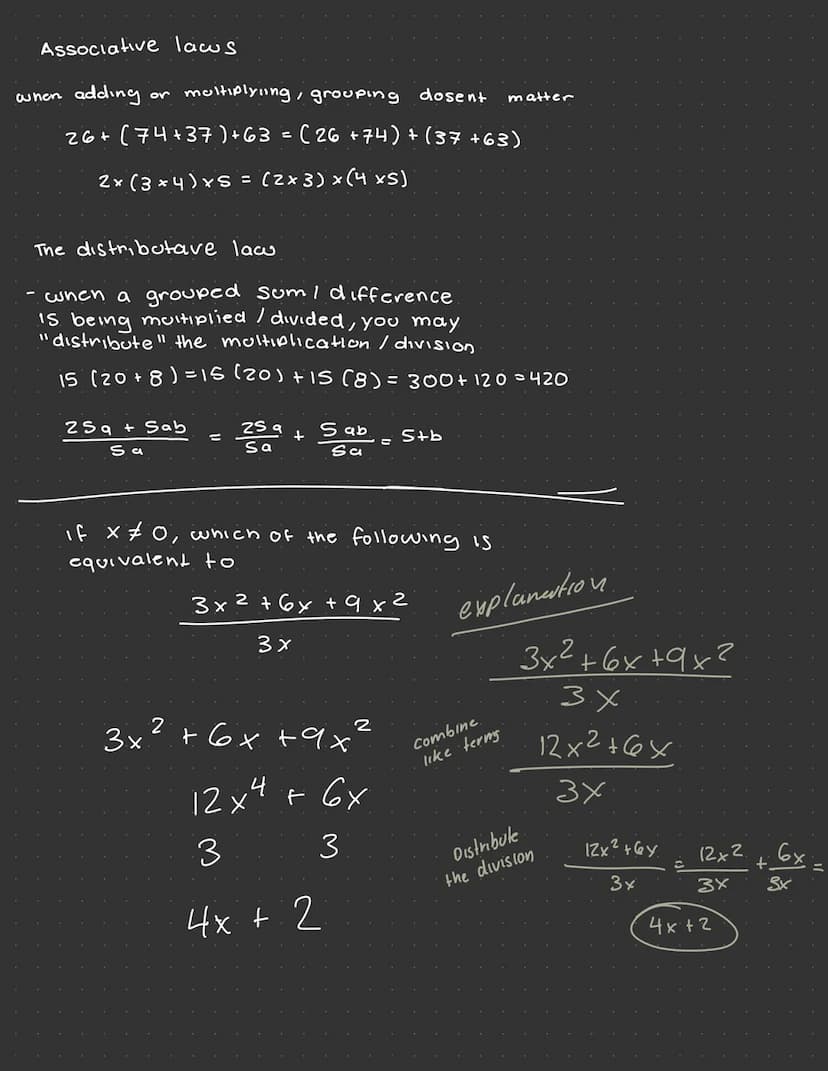 Associative laws
when adding or multiplyiing, grouping dosent matter
26+ (74+37)+63 = (26 +74) + (37 +63)
2×(3×4)×5 = (2×3)×(4×5)
The distributave law
- when a grouped sum / difference
is being multiplied / divided, you may
"distribute" the multiplication / division
15 (20+8) = 15 (20) + 15 (8) = 300 + 120 = 420
25a + 5ab / 5a = 25a / 5a + 5ab / 5a = 5+b
if x ≠ 0, which of the following is
equivalent to
3x² + 6x + 9x²
3x
3x² + 6x + 9x²
12x⁴ + 6x
3 3
4x + 2
explanation
3x² + 6x + 9x²
3x
combine
like terms
12x² + 6x
3x
Distribute
the division
12x² + 6x / 3x = 12x² / 3x + 6x / 3x =
4x + 2